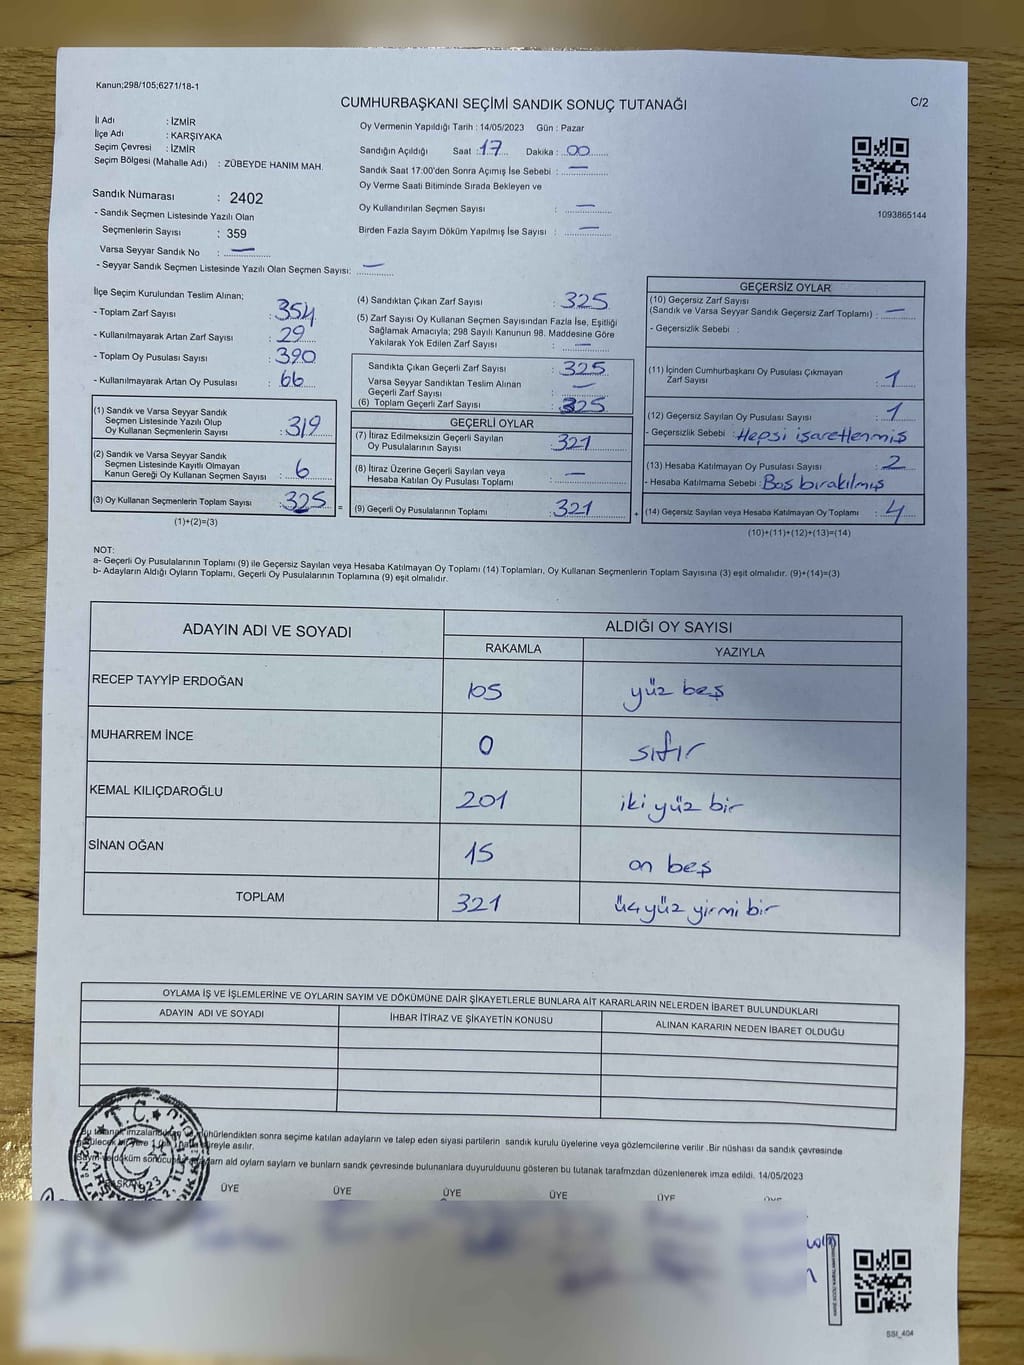 Kanun;298/105;6271/18-1
CUMHURBAŞKANI SEÇİMİ SANDIK SONUÇ TUTANAĞI
C/2
İl Adı : İZMİR
İlçe Adı : KARŞIYAKA
Seçim Çevresi : İZMİR
Seçim Bölgesi (Mahalle Adı) : ZÜBEYDE HANIM MAH.
Sandık Numarası : 2402
- Sandık Seçmen Listesinde Yazılı Olan
Seçmenlerin Sayısı : 359
Varsa Seyyar Sandık No : —
- Seyyar Sandık Seçmen Listesinde Yazılı Olan Seçmen Sayısı: —
Oy Vermenin Yapıldığı Tarih : 14/05/2023 Gün : Pazar
Sandığın Açıldığı Saat : 17 Dakika : 00
Sandık Saat 17:00'den Sonra Açımış İse Sebebi : —
Oy Verme Saati Bitiminde Sırada Bekleyen ve
Oy Kullandırılan Seçmen Sayısı : —
Birden Fazla Sayım Döküm Yapılmış İse Sayısı : —
1093865144
İlçe Seçim Kurulundan Teslim Alınan;
- Toplam Zarf Sayısı : 354
- Kullanılmayarak Artan Zarf Sayısı : 29
- Toplam Oy Pusulası Sayısı : 390
- Kullanılmayarak Artan Oy Pusulası : 66
(1) Sandık ve Varsa Seyyar Sandık
Seçmen Listesinde Yazılı Olup
Oy Kullanan Seçmenlerin Sayısı : 319
(2) Sandık ve Varsa Seyyar Sandık
Seçmen Listesinde Kayıtlı Olmayan
Kanun Gereği Oy Kullanan Seçmen Sayısı : 6
(3) Oy Kullanan Seçmenlerin Toplam Sayısı : 325
(1)+(2)=(3)
=
(4) Sandıktan Çıkan Zarf Sayısı : 325
(5) Zarf Sayısı Oy Kullanan Seçmen Sayısından Fazla İse, Eşitliği
Sağlamak Amacıyla; 298 Sayılı Kanunun 98. Maddesine Göre
Yakılarak Yok Edilen Zarf Sayısı : —
Sandıkta Çıkan Geçerli Zarf Sayısı : 325
Varsa Seyyar Sandıktan Teslim Alınan
Geçerli Zarf Sayısı : —
(6) Toplam Geçerli Zarf Sayısı : 325
GEÇERLİ OYLAR
(7) İtiraz Edilmeksizin Geçerli Sayılan
Oy Pusulasının Sayısı : 321
(8) İtiraz Üzerine Geçerli Sayılan veya
Hesaba Katılan Oy Pusulası Toplamı : —
(9) Geçerli Oy Pusulalarının Toplamı : 321
+
GEÇERSİZ OYLAR
(10) Geçersiz Zarf Sayısı
(Sandık ve Varsa Seyyar Sandık Geçersiz Zarf Toplamı) : —
- Geçersizlik Sebebi :
(11) İçinden Cumhurbaşkanı Oy Pusulası Çıkmayan
Zarf Sayısı : 1
(12) Geçersiz Sayılan Oy Pusulası Sayısı : 1
- Geçersizlik Sebebi : Hepsi işaretlenmiş
(13) Hesaba Katılmayan Oy Pusulası Sayısı : 2
- Hesaba Katılmama Sebebi : Boş bırakılmış
(14) Geçersiz Sayılan veya Hesaba Katılmayan Oy Toplamı : 4
(10)+(11)+(12)+(13)=(14)
NOT:
a- Geçerli Oy Pusulalarının Toplamı (9) ile Geçersiz Sayılan veya Hesaba Katılmayan Oy Toplamı (14) Toplamları, Oy Kullanan Seçmenlerin Toplam Sayısına (3) eşit olmalıdır. (9)+(14)=(3)
b- Adayların Aldığı Oyların Toplamı, Geçerli Oy Pusulalarının Toplamına (9) eşit olmalıdır.
ADAYIN ADI VE SOYADI
ALDIĞI OY SAYISI
RAKAMLA YAZIYLA
RECEP TAYYİP ERDOĞAN 105 yüz beş
MUHARREM İNCE 0 sıfır
KEMAL KILIÇDAROĞLU 201 iki yüz bir
SİNAN OĞAN 15 on beş
TOPLAM 321 üçyüz yirmi bir
OYLAMA İŞ VE İŞLEMLERİNE VE OYLARIN SAYIM VE DÖKÜMÜNE DAİR ŞİKAYETLERLE BUNLARA AİT KARARLARIN NELERDEN İBARET BULUNDUKLARI
ADAYIN ADI VE SOYADI İHBAR İTİRAZ VE ŞİKAYETİN KONUSU ALINAN KARARIN NEDEN İBARET OLDUĞU
T.C.
Bu tutanak imzalandıktan mühürlendikten sonra seçime katılan adayların ve talep eden siyasi partilerin sandık kurulu üyelerine veya gözlemcilerine verilir .Bir nüshası da sandık çevresinde
süreyle asılır.
Sayım ve döküm sonucunda ald oyların sayların ve bunların sandık çevresinde bulunanlara duyurulduunu gösteren bu tutanak tarafmzdan düzenlenerek imza edildi. 14/05/2023
BAŞKAN ÜYE ÜYE ÜYE ÜYE ÜYE
SSI_404